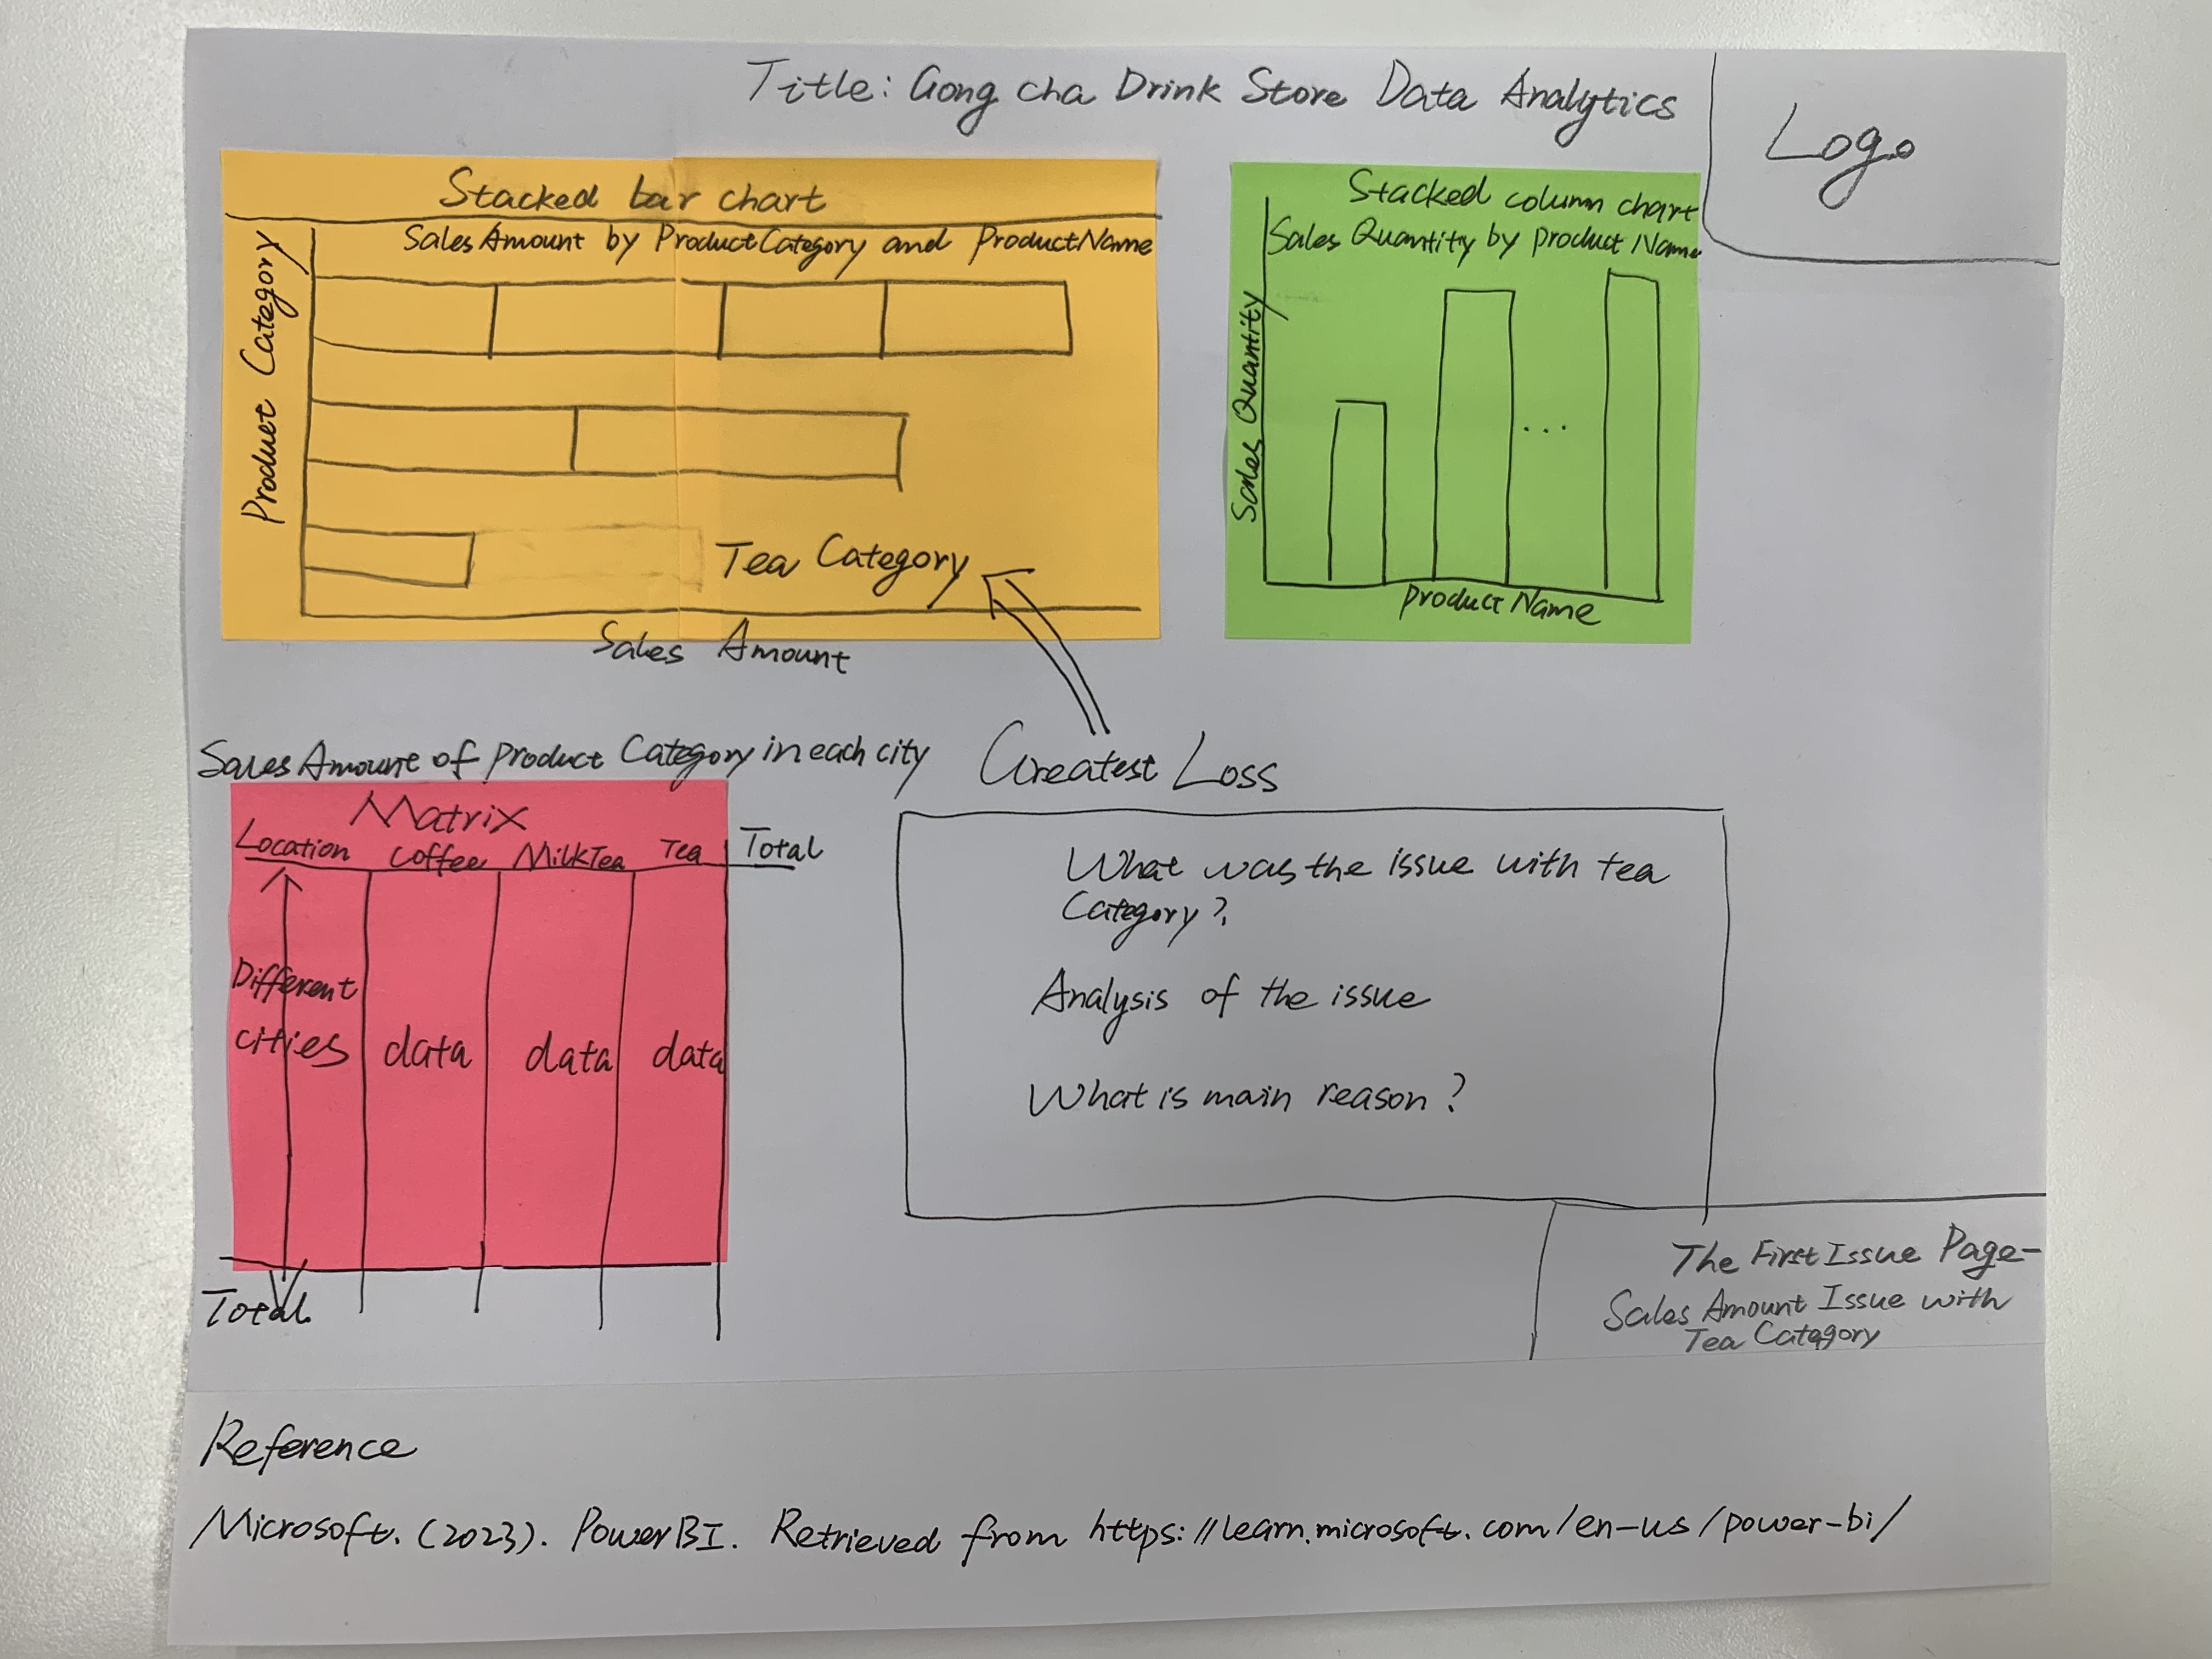 Title: Gong cha Drink Store Data Analytics
Logo
Stacked bar chart
Sales Amount by Product Category and Product Name
Product Category
Tea Category
Sales Amount
Stacked column chart
Sales Quantity by product Name
Sales Quantity
product Name
Greatest Loss
Sales Amount of product Category in each city
Matrix
Location Coffee MilkTea Tea Total
Different
cities
data data data
Total
What was the issue with tea
Category?
Analysis of the issue
What is main reason?
The First Issue Page-
Sales Amount Issue with
Tea Category
Reference
Microsoft. (2023). PowerBI. Retrieved from https://learn.microsoft.com/en-us/power-bi/